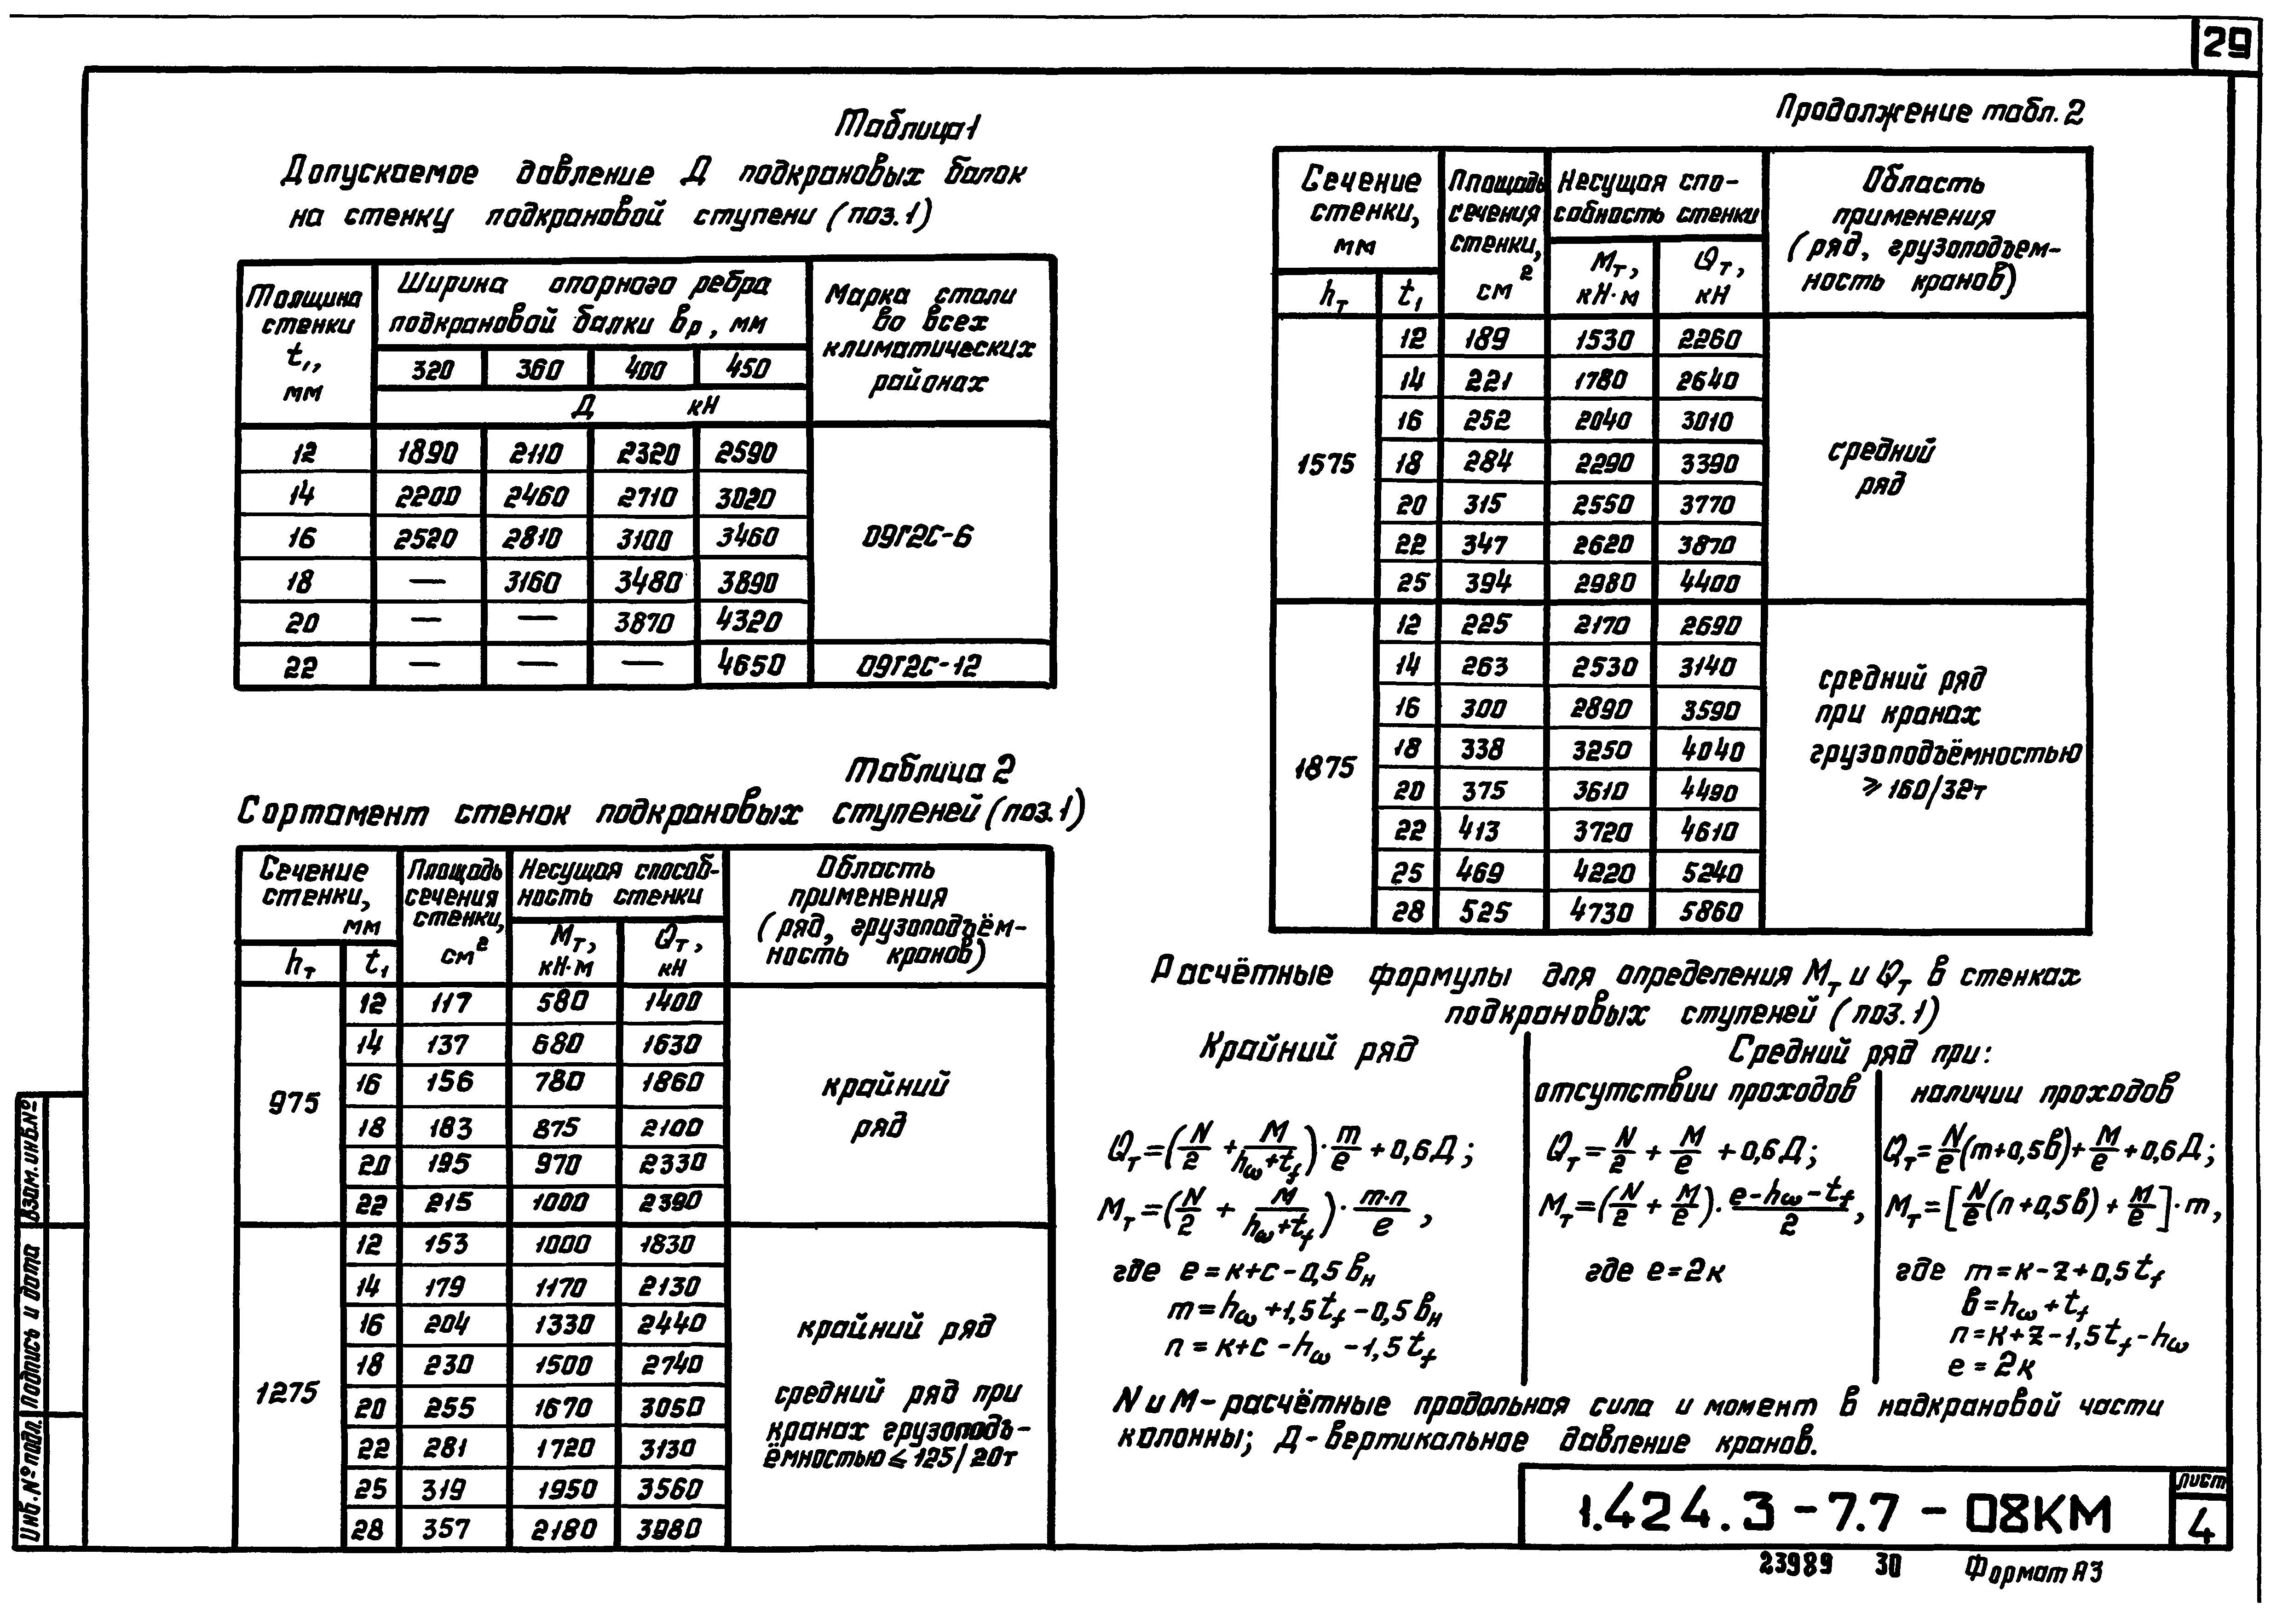 29
Таблица 1
Допускаемое давление Д подкрановых балок
на стенку подкрановой ступени (поз.1)
Толщина стенки t₁, мм | Ширина опорного ребра подкрановой балки вр, мм | Марка стали во всех климатических районах
320 | 360 | 400 | 450
Д кН
12 | 1890 | 2110 | 2320 | 2590 | 09Г2С-6
14 | 2200 | 2460 | 2710 | 3020
16 | 2520 | 2810 | 3100 | 3460
18 | — | 3160 | 3480 | 3890
20 | — | — | 3870 | 4320
22 | — | — | — | 4650 | 09Г2С-12
Таблица 2
Сортамент стенок подкрановых ступеней (поз.1)
Сечение стенки, мм | Площадь сечения стенки, см² | Несущая способ-ность стенки | Область применения (ряд, грузоподъём-ность кранов)
hт | t₁ | Мт, кН·м | Qт, кН
975 | 12 | 117 | 580 | 1400 | крайний ряд
14 | 137 | 680 | 1630
16 | 156 | 780 | 1860
18 | 183 | 875 | 2100
20 | 195 | 970 | 2330
22 | 215 | 1000 | 2390
1275 | 12 | 153 | 1000 | 1830 | крайний ряд средний ряд при кранах грузоподъ-ёмностью ≤ 125/20т
14 | 179 | 1170 | 2130
16 | 204 | 1330 | 2440
18 | 230 | 1500 | 2740
20 | 255 | 1670 | 3050
22 | 281 | 1720 | 3130
25 | 319 | 1950 | 3560
28 | 357 | 2180 | 3980
Продолжение табл. 2
Сечение стенки, мм | Площадь сечения стенки, см² | Несущая спо-собность стенки | Область применения (ряд, грузоподъем-ность кранов)
hт | t₁ | Мт, кН·м | Qт, кН
1575 | 12 | 189 | 1530 | 2260 | средний ряд
14 | 221 | 1780 | 2640
16 | 252 | 2040 | 3010
18 | 284 | 2290 | 3390
20 | 315 | 2550 | 3770
22 | 347 | 2620 | 3870
25 | 394 | 2980 | 4400
1875 | 12 | 225 | 2170 | 2690 | средний ряд при кранах грузоподъёмностью ⩾ 160/32т
14 | 263 | 2530 | 3140
16 | 300 | 2890 | 3590
18 | 338 | 3250 | 4040
20 | 375 | 3610 | 4490
22 | 413 | 3720 | 4610
25 | 469 | 4220 | 5240
28 | 525 | 4730 | 5860
Расчётные формулы для определения Мт и Qт в стенках
подкрановых ступеней (поз.1)
Крайний ряд
Qт=(N/2 + M/(hω+tf))·m/e + 0,6Д;
Мт=(N/2 + M/(hω+tf))·m·n/e,
где e=к+с-0,5вн
m=hω+1,5tf-0,5вн
n=к+с-hω-1,5tf
Средний ряд при:
отсутствии проходов
Qт=N/2 + M/e + 0,6Д;
Мт=(N/2 + M/e)·(e-hω-tf)/2,
где e=2к
наличии проходов
Qт=N/e(m+0,5в)+M/e+0,6Д;
Мт=[N/e(n+0,5в)+M/e]·m,
где m=к-z+0,5tf
в=hω+tf
n=к+z-1,5tf-hω
e=2к
N и М-расчётные продольная сила и момент в надкрановой части
колонны; Д-вертикальное давление кранов.
Взам.инв.№
Подпись и дата
Инв.№ подл.
1.424.3-7.7-08КМ
лист
4
23989 30 Формат А3